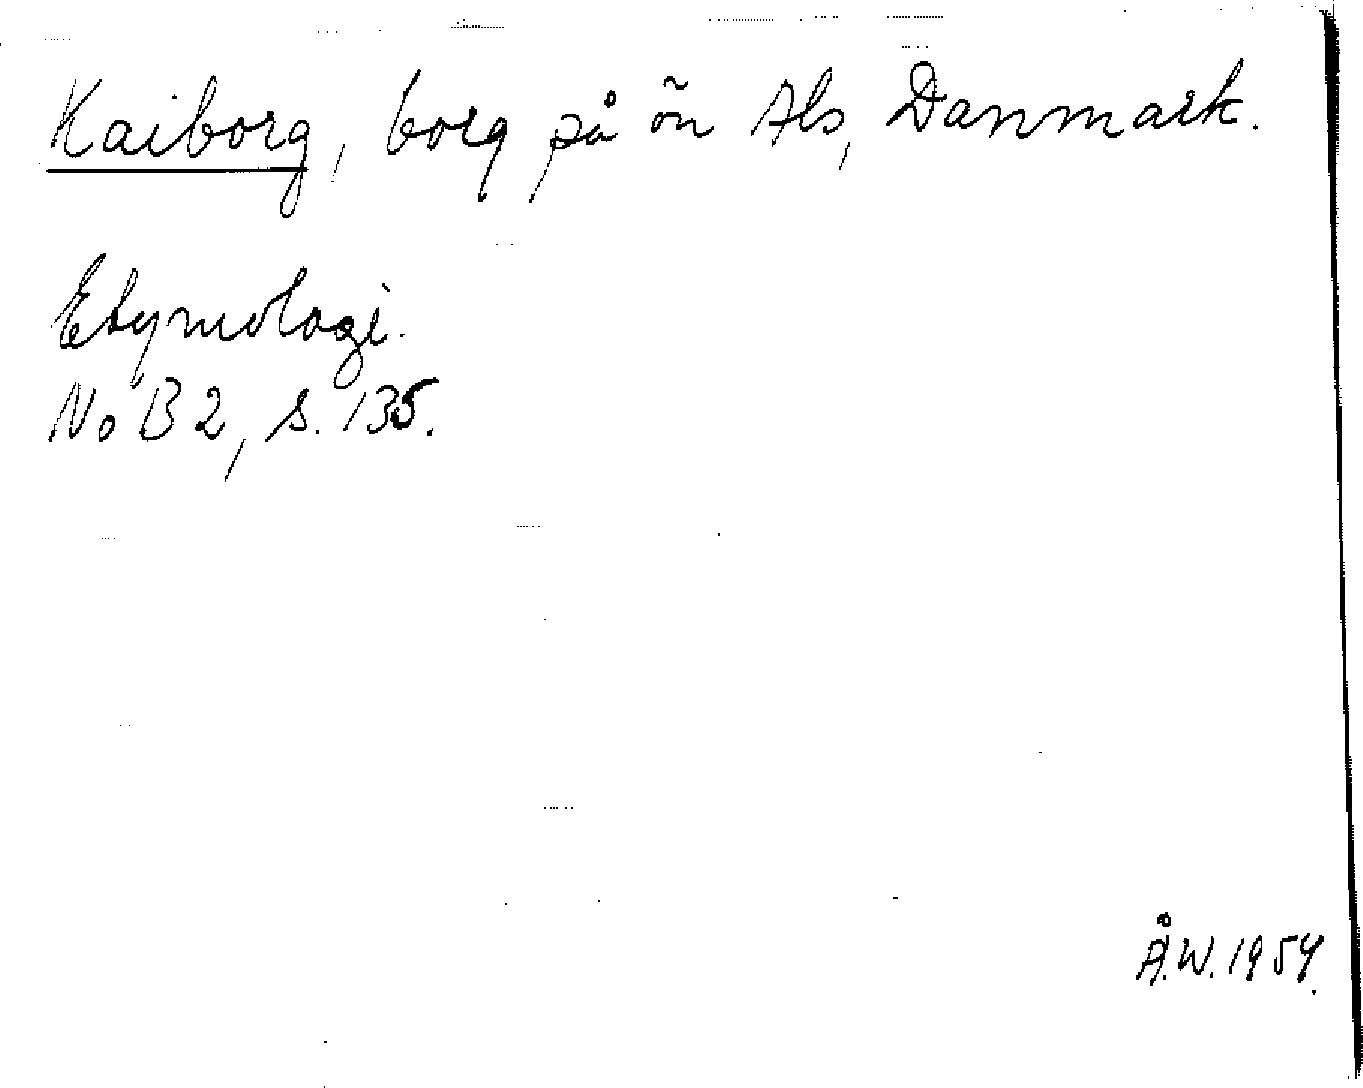 Kaiborg, borg på ön Als, Danmark.
Etymologi.
NoB 2, s. 135.
Å.W. 1954.